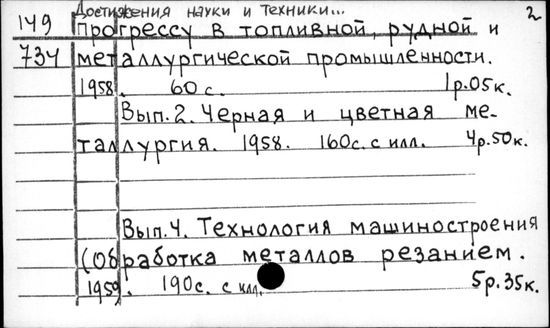 Достижения науки и техники... 2
149 Прогрессу в топливной, рудной и
734 металлургической промышленности.
1958. 60 с. 1р.05к.
Вып.2. Черная и цветная ме-
таллургия. 1958. 160с. с илл. 4р.50к.
Вып.4. Технология машиностроения
(Обработка металлов резанием.
1959. 190с. с илл. 5р.35к.